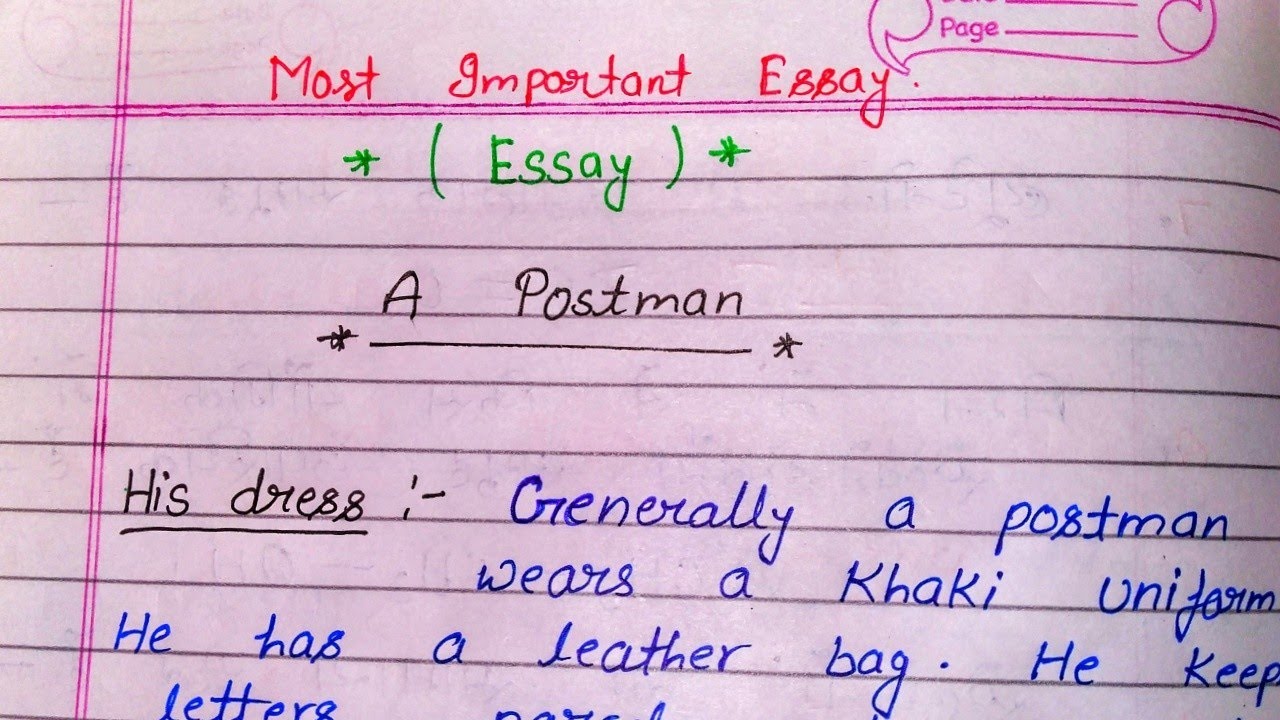 Page
Most Important Essay.
* ( Essay ) *
A Postman
* *
His dress :- Generally a postman
wears a Khaki uniform
He has a leather bag. He keep
letters